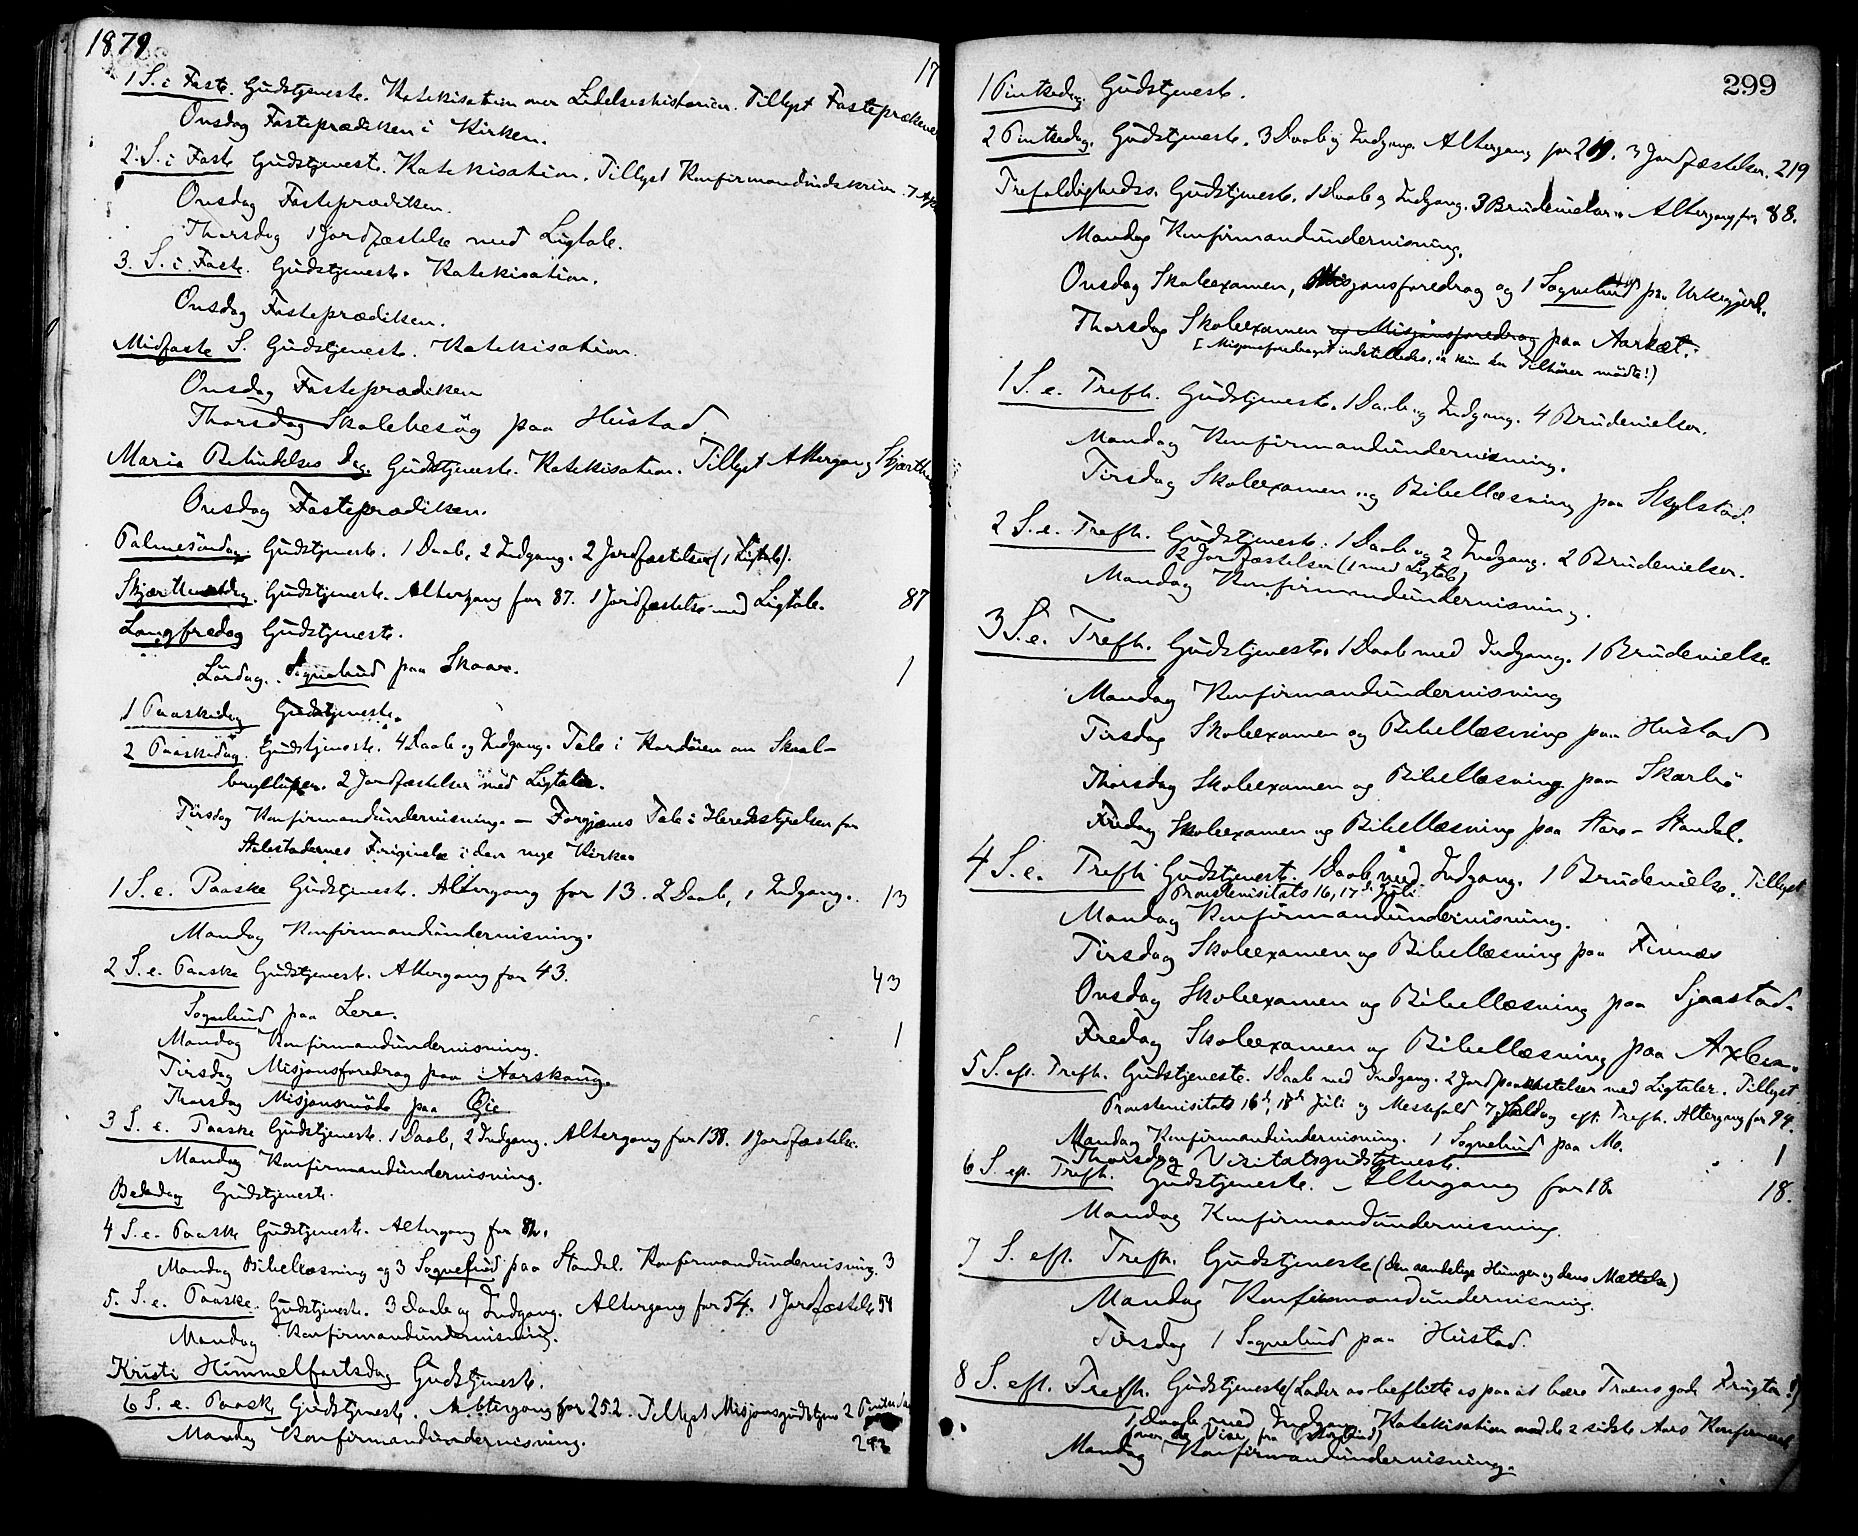 1879
17
1 S. i Faste. Gudstjeneste. Katekisation over Lidelseshistorien. Tillyst Fasteprækener
Onsdag Fasteprædiken i Kirken.
2. S. i Faste Gudstjeneste. Katekisation. Tillyst Konfirmandindskrivn. 7 Apr
Onsdag Fasteprædiken.
Thorsdag 1 Jordfæstelse med Ligtale.
3. S. i Faste. Gudstjeneste. Katekisation.
Onsdag Fasteprædiken.
Midfaste S. Gudstjeneste. Katekisation.
Onsdag Fasteprædiken
Thorsdag Skolebesög paa Hustad.
Maria Bebudelses Dag. Gudstjeneste. Katekisation. Tillyst Altergang Skjærth
Onsdag Fasteprædiken.
Palmesöndag. Gudstjeneste. 1 Daab, 2 Indgang. 2 Jordfæstelser (1 Ligtale).
Skjærthorsdag. Gudstjeneste. Altergang for 87. 1 Jordfæstelse med Ligtale. 87
Langfredag Gudstjeneste.
Lördag. Sognebud paa Skaar. 1
1 Paaskedag Gudstjeneste.
2 Paaskedag. Gudstjeneste. 4 Daab og Indgang. Tale i Kordören om Skaal-
bryllüper. 2 Jordfæstelser med Ligtaler.
Tirsdag Konfirmandundervisning. – Forgjæves Tale i Heredsstyrelsen for
Stolestadernes Frigivelse i den nye Kirke.
1 S. e. Paaske Gudstjeneste. Altergang for 13. 2 Daab, 1 Indgang. 13
Mandag Konfirmandundervisning.
2 S. e. Paaske Gudstjeneste. Altergang for 43. 43
Sognebud paa Lere. 1
Mandag Konfirmandundervisning.
Tirsdag Misjonsforedrag paa Aarskaug.
Thorsdag Misjonsmöde paa Øie
3 S. e. Paaske Gudstjeneste. 1 Daab, 2 Indgang. Altergang for 138. 1 Jordfæstelse.
Mandag Konfirmandundervisning.
Bededag Gudstjeneste.
4 S. e. Paaske Gudstjeneste. Altergang for 82.
Mandag Bibellæsning og 3 Sognebud paa Standal. Konfirmandundervisning. 3
5. S. e. Paaske. Gudstjeneste. 3 Daab og Indgang. Altergang for 54. 1 Jordfæstelse 54
Mandag Konfirmandundervisning.
Kristi Himmelfartsdag Gudstjeneste.
6 S. e. Paaske Gudstjeneste. Altergang for 252. Tillyst Misjonsgudstjens 2 Pintsedag
Mandag Konfirmandundervisning. 252
299
1 Pintsedag. Gudstjeneste.
2 Pintsedag. Gudstjeneste. 3 Daab og Indgang. Altergang for 219. 3 Jordfæstelser. 219
Trefoldigheds. Gudstjeneste. 1 Daab og Indgang. 3 Brudevielser. Altergang for 88.
Mandag Konfirmandundervisning.
Onsdag Skoleexamen, Misjonsforedrag og 1 Sognebud paa Urkegjerd.
Thorsdag Skoleexamen og Misjonsforedrag paa Aarsæt.
(Misjonsforedraget indstilledes, da kun en Tilhörer mödte!)
1 S. e. Trefh. Gudstjeneste. 1 Daab og Indgang. 4 Brudevielser.
Mandag Konfirmandundervisning.
Tirsdag Skoleexamen og Bibellæsning paa Skylstad.
2 S. e. Trefh. Gudstjeneste. 1 Daab og 2 Indgang. 2 Brudevielser.
2 Jordfæstelser (1 med Ligtale)
Mandag Konfirmandundervisning.
3 S. e. Trefh. Gudstjeneste. 1 Daab med Indgang. 1 Brudevielse.
Mandag Konfirmandundervisning
Tirsdag Skoleexamen og Bibellæsning paa Hustad
Thorsdag Skoleexamen og Bibellæsning paa Skarbö
Fredag Skoleexamen og Bibellæsning paa Store-Standal.
4 S. e. Trefh Gudstjeneste. 1 Daab med Indgang. 1 Brudevielse. Tillyst
Provstevisitats 16, 17de Juli
Mandag Konfirmandundervisning.
Tirsdag Skoleexamen og Bibellæsning paa Finnæs
Onsdag Skoleexamen og Bibellæsning paa Sjaastad.
Fredag Skoleexamen og Bibellæsning paa Axlen.
5 S. eft. Trefh. Gudstjeneste. 1 Daab med Indgang. 2 Jordpaakastelser med Ligtaler. Tillyst
Provstevisitats 16de, 18de Juli og Messefald 7 Söndag eft. Trefh. Altergang for 94.
Mandag Konfirmandundervisning. 1 Sognebud paa Mo. 1
Thorsdag Visitatsgudstjeneste.
6 S. ef. Trefh. Gudstjeneste. – Altergang for 18. 18.
Mandag Konfirmandundervisning.
7 S. eft. Trefh. Gudstjeneste (Den aandelige Hunger og dens Mættelse)
Mandag Konfirmandundervisning.
Tirsdag 1 Sognebud paa Hustad.
8 S. eft. Trefh. Gudstjeneste (Lader os beflitte os paa at bære Troens gode Frugter!)
1 Daab med Indgang Katekisation med de 2 sidste Aars Konfirmerede
Mandag Konfirmandundervisning.